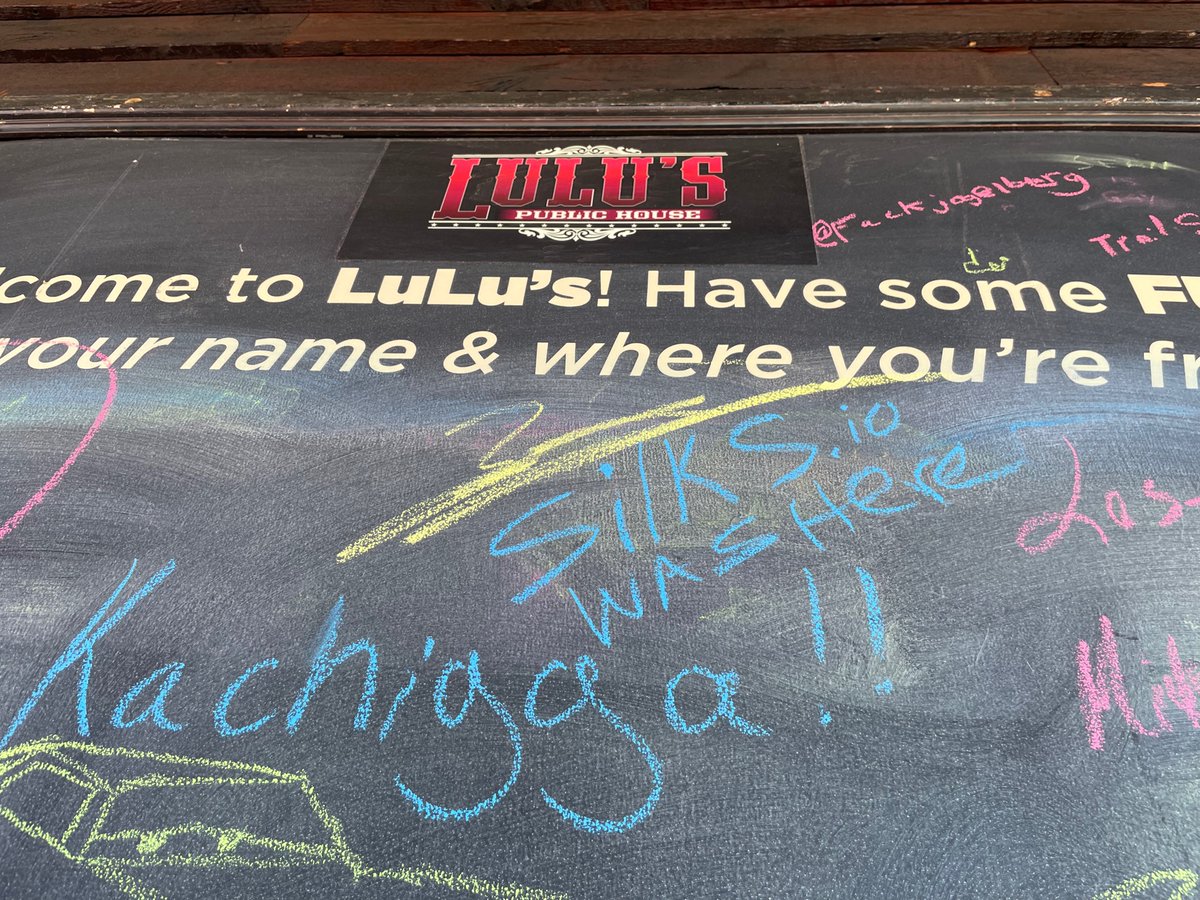 LULU'S
PUBLIC HOUSE
@Fackjgelberg
Trail
lcome to LuLu's! Have some FU
your name & where you're fr
SilkS.io
WAS Here
Las
Kachigga!!!